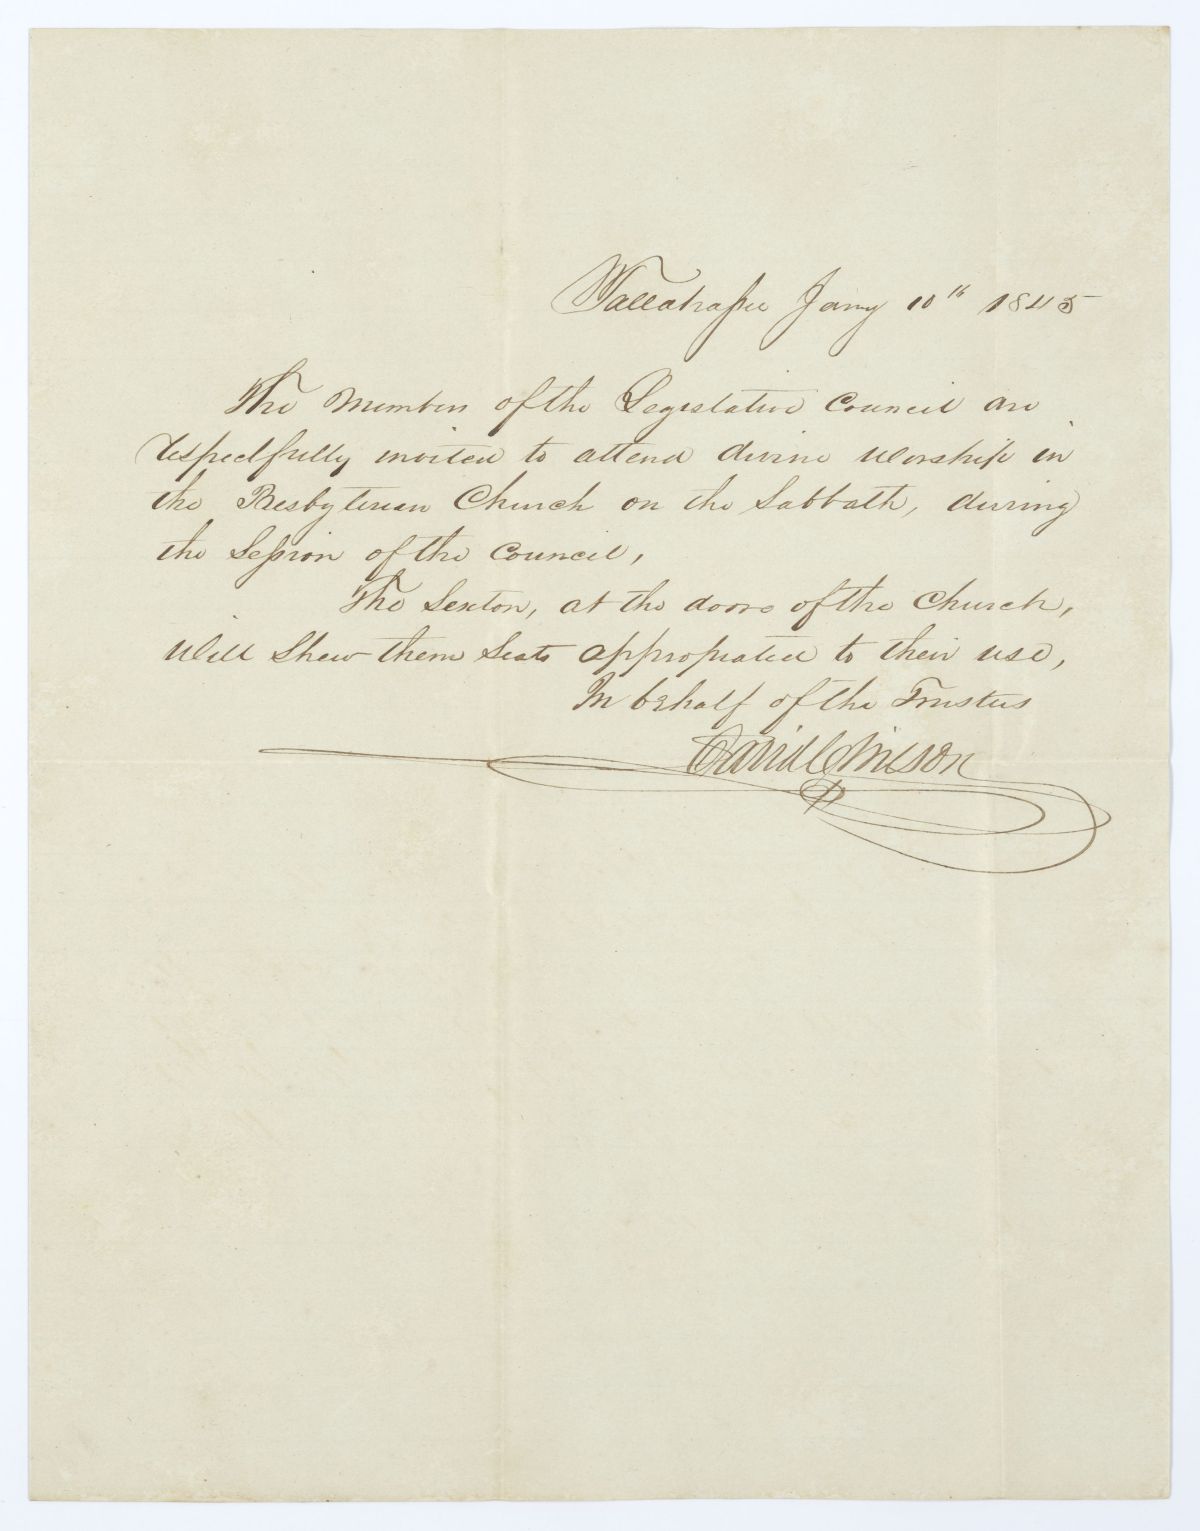 Tallahassee Jany 10th 1845
The Members of the Legislative Council are
respectfully invited to attend divine worship in
the Presbyterian Church on the Sabbath, during
the Session of the Council,
The Sexton, at the doors of the Church,
will Shew them Seats appropriated to their use,
In behalf of the Trustees
David C Wilson